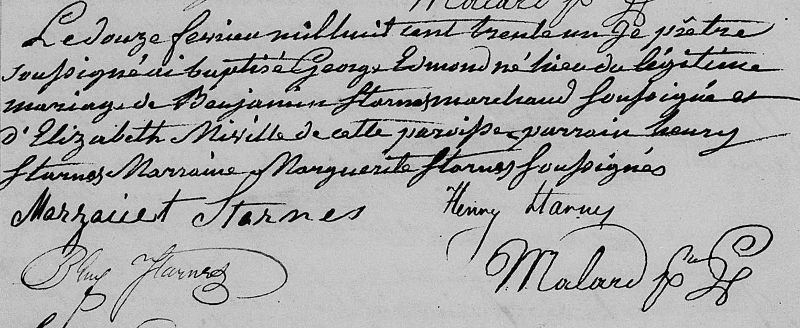 Malard ptre
Le douze fevrier mil huit cent trente un Je prêtre
soussigné ai baptisé George Edmond né hier du légitime
mariage de Benjamin Starnes marchand soussigné et
d'Elizabeth Miville de cette paroisse, parrain henry
Starnes Marraine Marguerite Starnes soussignés
Marraiuet Starnes Henry Starnes
Benj Starnes Malard ptre